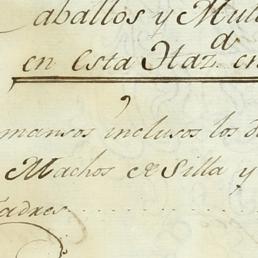 Caballos y Mul
en esta Haz.ª en
mansos inclusos los d
Machos de Silla y
Padres